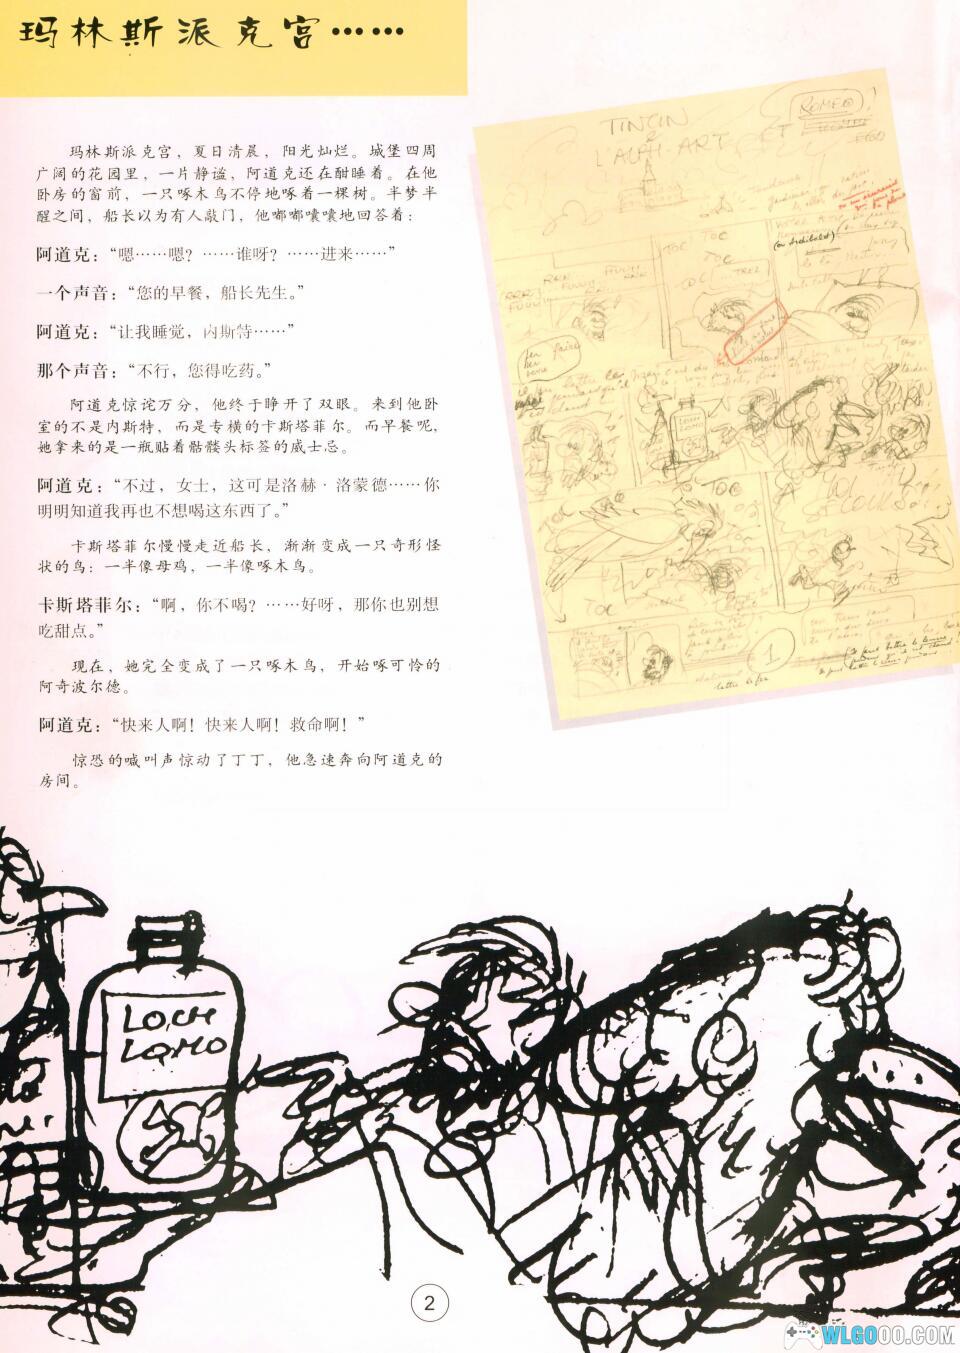 玛林斯派克宫……
玛林斯派克宫，夏日清晨，阳光灿烂。城堡四周
广阔的花园里，一片静谧，阿道克还在酣睡着。在他
卧房的窗前，一只啄木鸟不停地啄着一棵树。半梦半
醒之间，船长以为有人敲门，他嘟嘟囔囔地回答着：
阿道克：“嗯……嗯？……谁呀？……进来……”
一个声音：“您的早餐，船长先生。”
阿道克：“让我睡觉，内斯特……”
那个声音：“不行，您得吃药。”
阿道克惊诧万分，他终于睁开了双眼。来到他卧
室的不是内斯特，而是专横的卡斯塔菲尔。而早餐呢，
她拿来的是一瓶贴着骷髅头标签的威士忌。
阿道克：“不过，女士，这可是洛赫·洛蒙德……你
明明知道我再也不想喝这东西了。”
卡斯塔菲尔慢慢走近船长，渐渐变成一只奇形怪
状的鸟：一半像母鸡，一半像啄木鸟。
卡斯塔菲尔：“啊，你不喝？……好呀，那你也别想
吃甜点。”
现在，她完全变成了一只啄木鸟，开始啄可怜的
阿奇波尔德。
阿道克：“快来人啊！快来人啊！救命啊！”
惊恐的喊叫声惊动了丁丁，他急速奔向阿道克的
房间。
TINTIN
&
L'ALPH-ART
ET
ROMEO
EGO
TOC TOC
TOC
TOC
LOCH
LOMO
TOC
TOC
1
LOCH
LOMO
2
WLGOOO.COM